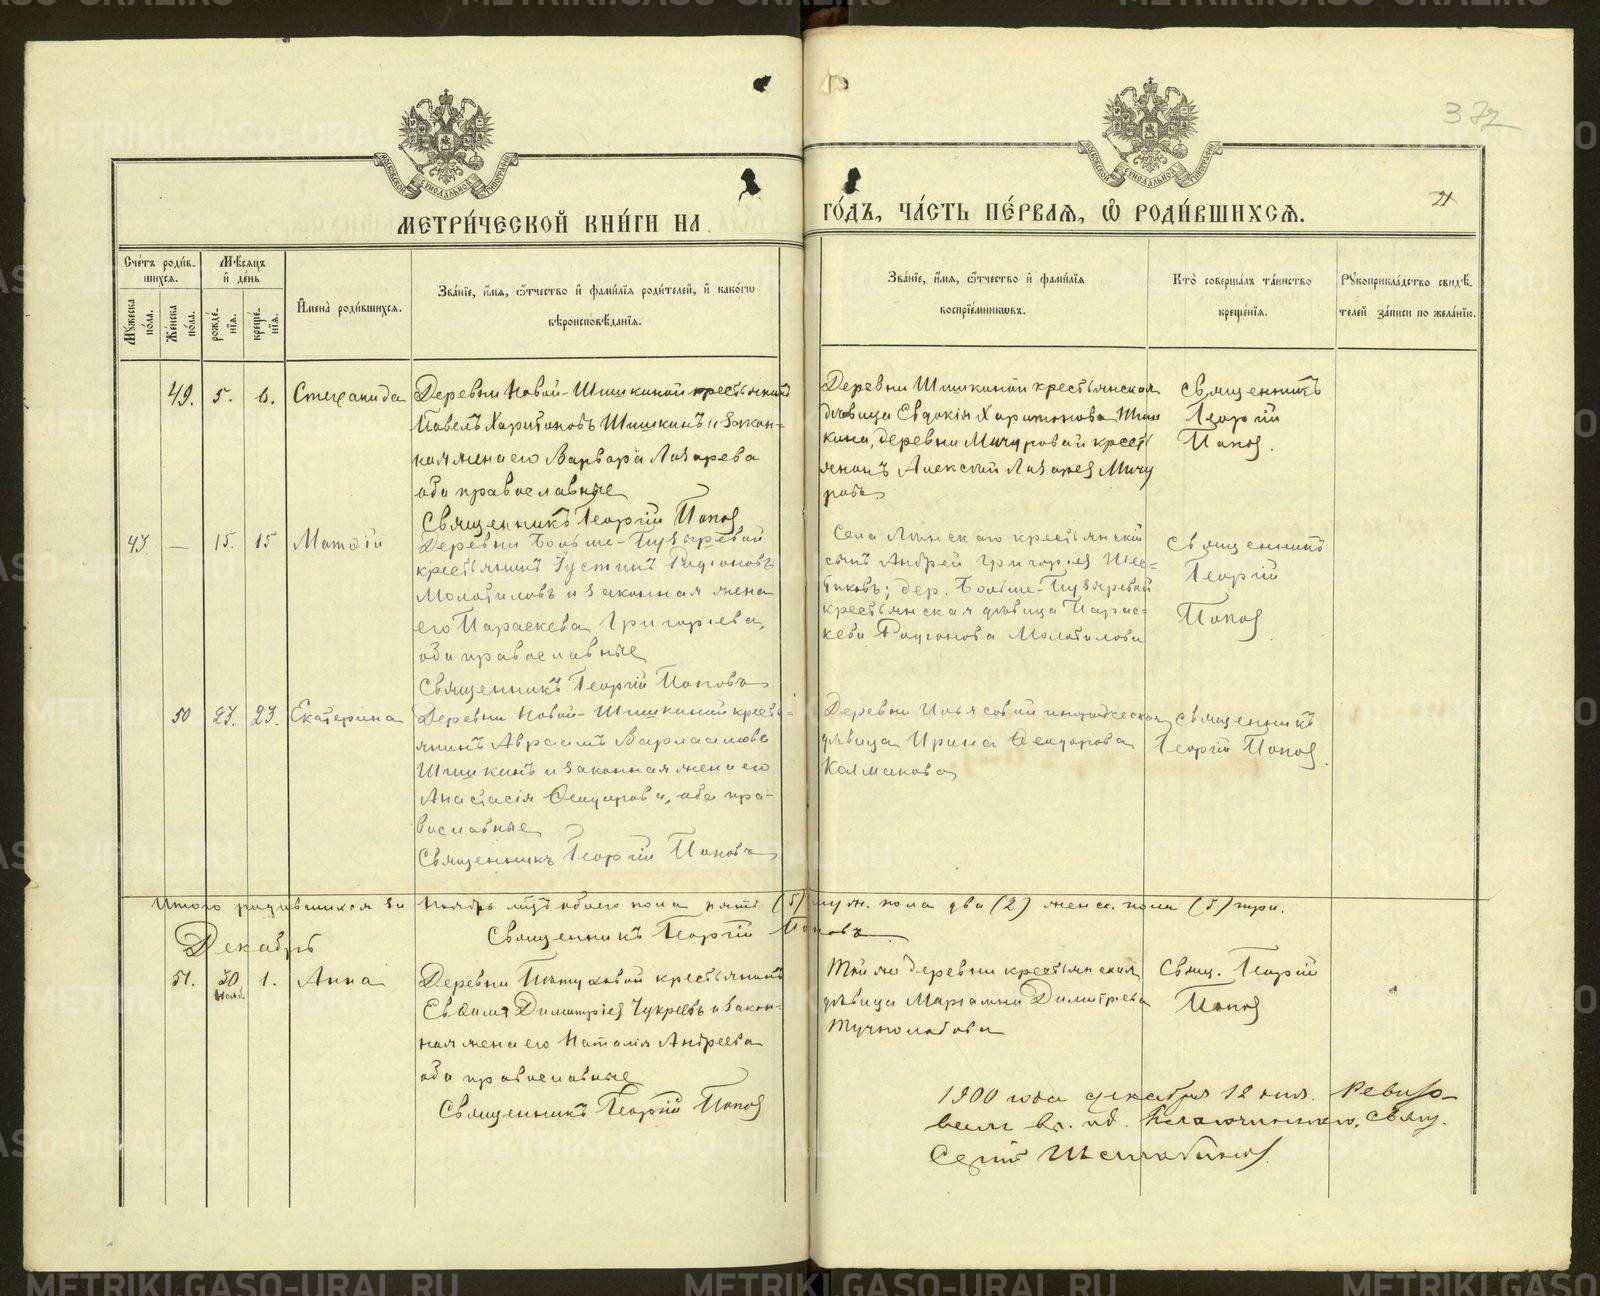 372
21
МЕТРИ́ЧЕСКОЙ КНИ́ГИ НА
ГО́ДЪ, ЧА́СТЬ ПЕ́РВАЯ, Ѡ РОДИ́ВШИХСЯ.
Сче́тъ роди́в-
шихся.
Мꙋжеска по́ла.
Же́нска по́ла.
Мѣ́сяцъ
и де́нь
рожде́-
нія.
креще́-
нія.
Имена̀ роди́вшихся.
Зва́ніе, и́мя, ѻ́тчество и фами́лія роди́телей, и како́гѡ
вѣроисповѣ́данія.
Зва́ніе, и́мя, ѻ́тчество и фами́лія
воспріе́мникѡвъ.
Кто̀ соверша́лъ та́инство
креще́нія.
Рꙋкоприкла́дство свидѣ́-
телей за́писи по жела́нію.
49. 5. 6. Стефанида
Деревни Новой-Шишкиной крестьянинъ
Павелъ Харитоновъ Шишкинъ и закон-
ная жена его Варвара Лазарева
оба православные
Священникъ Георгій Попов
Деревни Шишкиной крестьянская
дѣвица Евдокія Харитонова Шиш
кина, деревни Мичуровой кресть
янинъ Алексей Лазарев Мичу
ровъ
Священникъ
Георгій
Попов.
43 — 15. 15 Матѳій
Деревни Больше-Пузыревой
крестьянинъ Іустинъ Родіоновъ
Молотиловъ и законная жена
его Параскева Григорьева,
оба православные
Священникъ Георгій Поповъ
Села крестьянскій
сынъ Андрей Григорьев Шес-
таковъ; дер. Больше-Пузыревой
крестьянская дѣвица Парас-
кева Родіонова Молотилова
Священникъ
Георгій
Попов.
50 23. 23. Екатерина
Деревни Новой-Шишкиной кресть-
янинъ Авраамъ Варлаамовъ
Шишкинъ и законная жена его
Анастасія Ѳеодорова, оба пра-
вославные
Священникъ Георгій Поповъ
Деревни
дѣвица Ирина Ѳеодорова
Колмакова
Священникъ
Георгій Попов.
Итого родившихся за Ноябрь мцъ обоего пола пять (5) муж. пола два (2) женск. пола (3) три.
Священникъ Георгій Поповъ
Декабрь
51. 30 Нояб. 1. Анна
Деревни крестьянинъ
Евѳимъ Димитріев и закон-
ная жена его Наталія Андреева
оба православные
Священникъ Георгій Попов
Той же деревни крестьянская
дѣвица Маріамна Димитріева
Свящ. Георгій
Попов
1900 года декабря 12 дня. Ревизо-
валъ свящ.